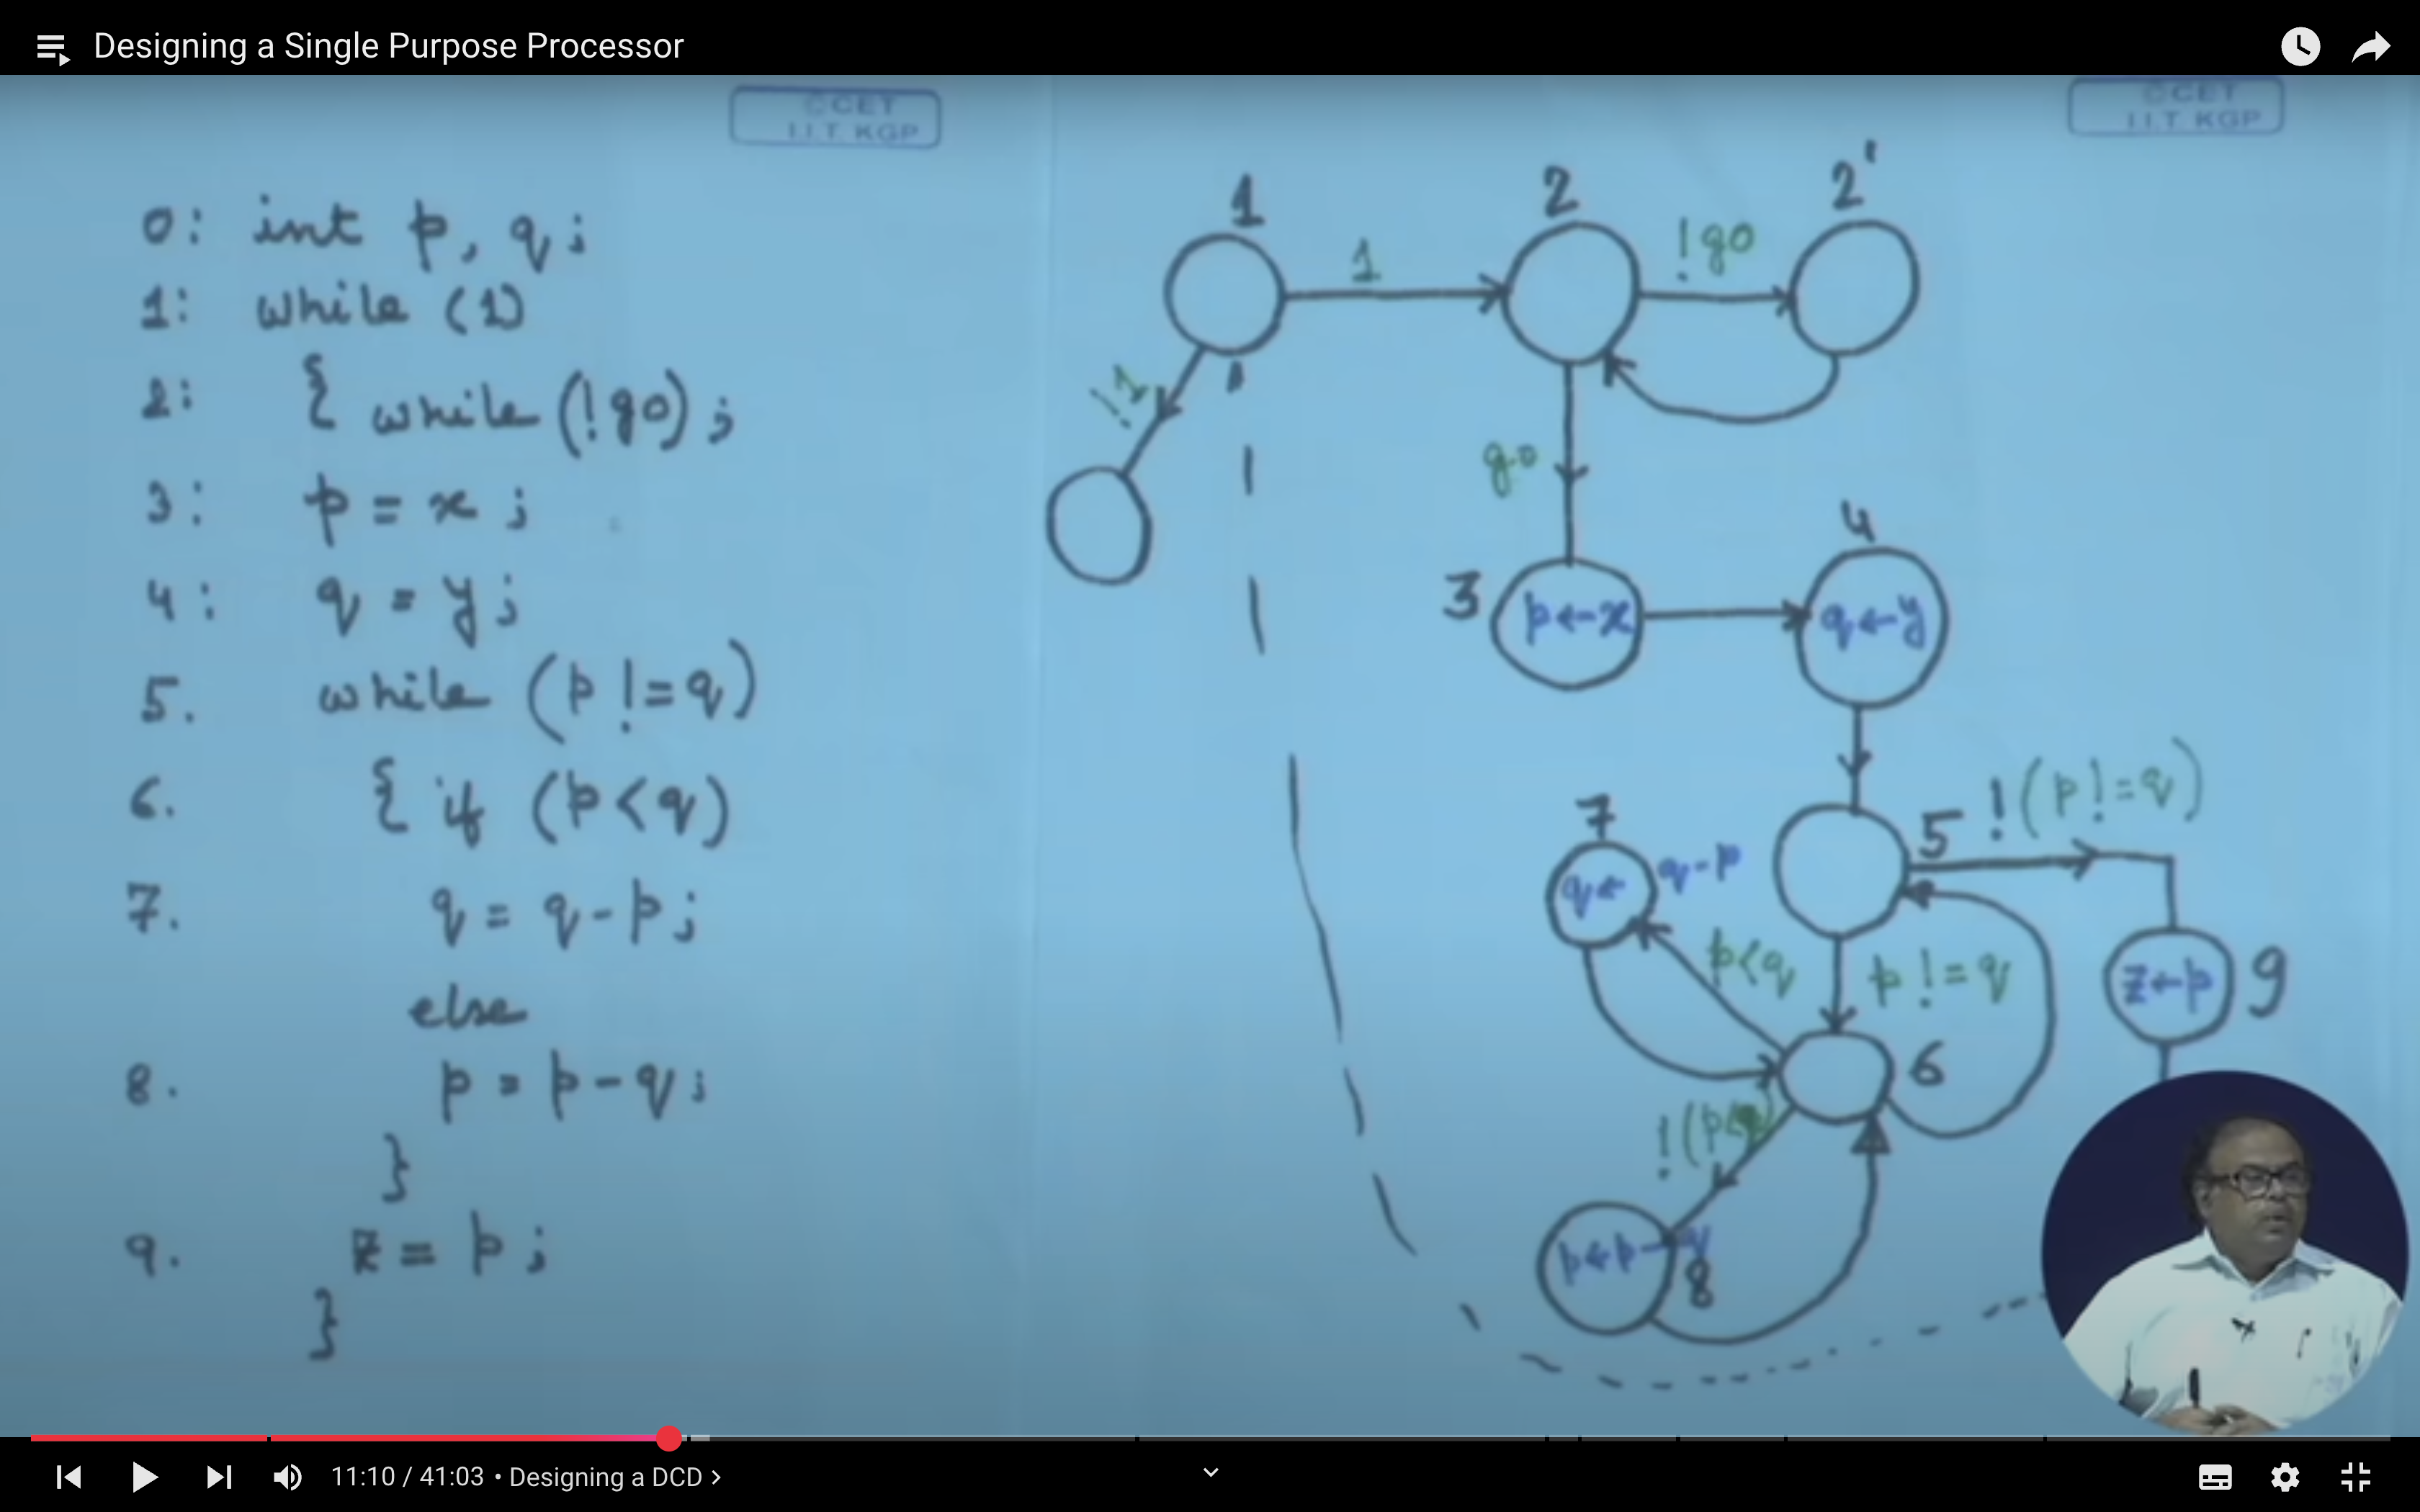 Designing a Single Purpose Processor
©CET
I.I.T. KGP
0: int p, q;
1: while (1)
2: { while (!go);
3: p = x;
4: q = y;
5. while (p != q)
6. { if (p < q)
7. q = q - p;
else
8. p = p - q;
}
9. z = p;
}
©CET
I.I.T. KGP
1
2
2'
1
!go
!1
go
3
p←x
4
q←y
5
!(p!=q)
7
q← q-p
p<q
p != q
z←p
9
6
!(p<q)
p←p-q
8
11:10 / 41:03 • Designing a DCD >